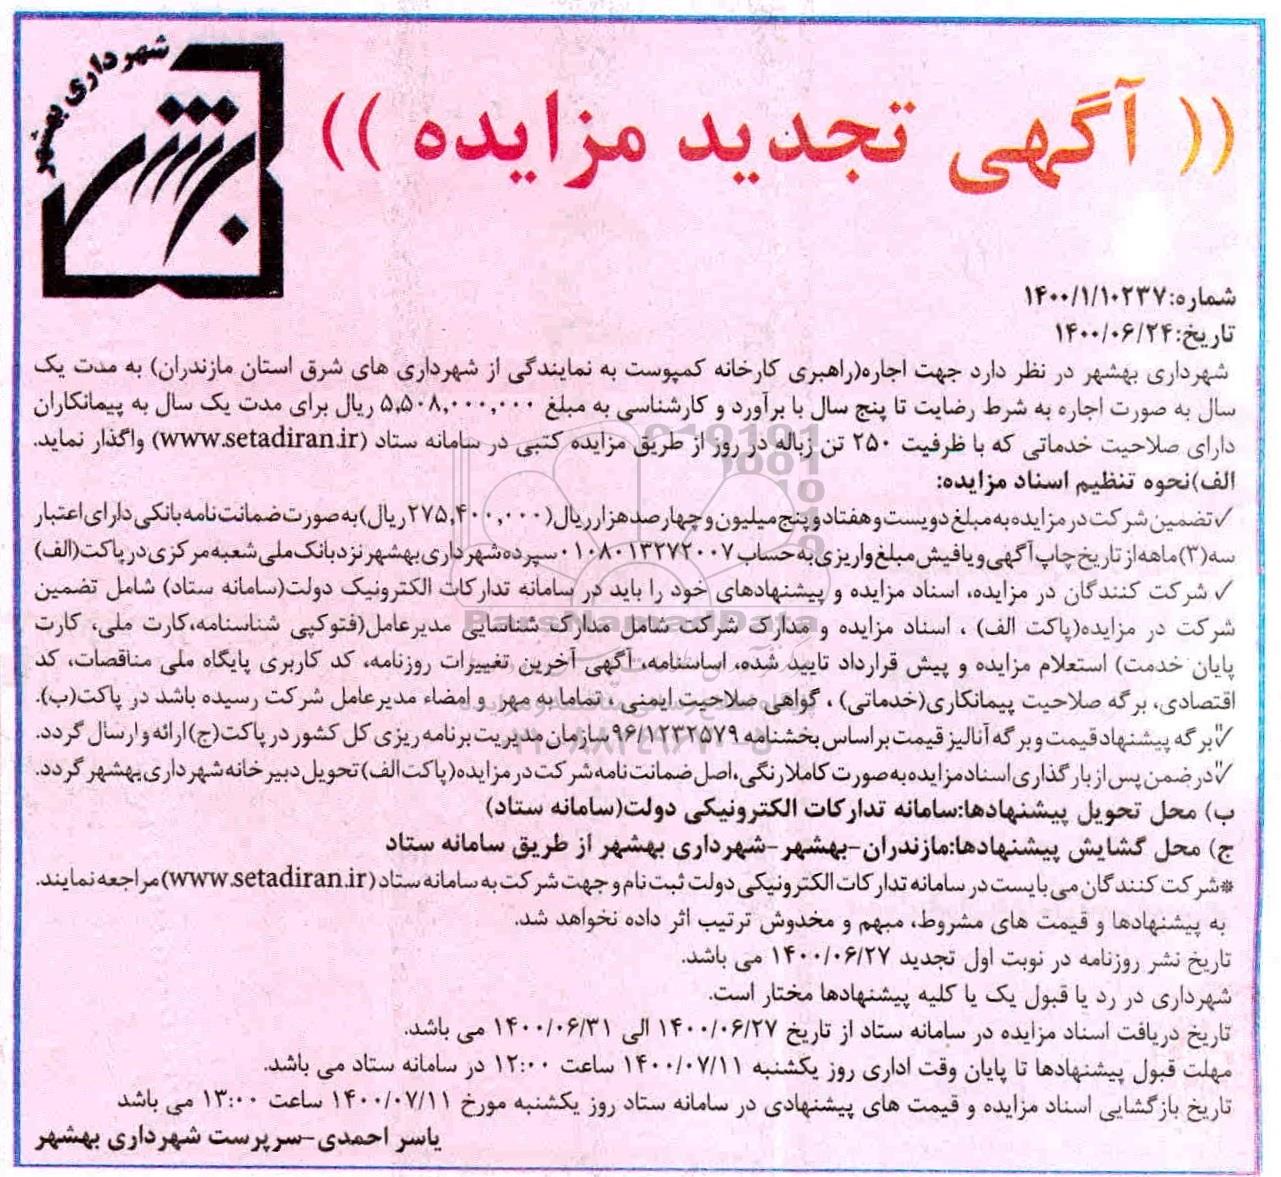 شهرداری بهشهر
(( آگهی تجدید مزایده ))
شماره:۱۴۰۰/۱/۱۰۲۳۷
تاریخ:۱۴۰۰/۰۶/۲۴
شهرداری بهشهر در نظر دارد جهت اجاره(راهبری کارخانه کمپوست به نمایندگی از شهرداری های شرق استان مازندران) به مدت یک
سال به صورت اجاره به شرط رضایت تا پنج سال با برآورد و کارشناسی به مبلغ ۵,۵۰۸,۰۰۰,۰۰۰ ریال برای مدت یک سال به پیمانکاران
دارای صلاحیت خدماتی که با ظرفیت ۲۵۰ تن زباله در روز از طریق مزایده کتبی در سامانه ستاد (www.setadiran.ir) واگذار نماید.
الف)نحوه تنظیم اسناد مزایده:
✓تضمین شرکت در مزایده به مبلغ دویست و هفتاد و پنج میلیون و چهارصد هزار ریال(۲۷۵,۴۰۰,۰۰۰ریال)به صورت ضمانت نامه بانکی دارای اعتبار
سه(۳)ماهه از تاریخ چاپ آگهی و یا فیش مبلغ واریزی به حساب ۰۱۰۸۰۱۳۲۷۲۰۰۷ سپرده شهرداری بهشهر نزد بانک ملی شعبه مرکزی در پاکت(الف)
✓ شرکت کنندگان در مزایده، اسناد مزایده و پیشنهادهای خود را باید در سامانه تدارکات الکترونیک دولت(سامانه ستاد) شامل تضمین
شرکت در مزایده(پاکت الف) ، اسناد مزایده و مدارک شرکت شامل مدارک شناسایی مدیرعامل(فتوکپی شناسنامه،کارت ملی، کارت
پایان خدمت) استعلام مزایده و پیش قرارداد تایید شده، اساسنامه، آگهی آخرین تغییرات روزنامه، کد کاربری پایگاه ملی مناقصات، کد
اقتصادی، برگه صلاحیت پیمانکاری(خدماتی) ، گواهی صلاحیت ایمنی ، تماما به مهر و امضاء مدیرعامل شرکت رسیده باشد در پاکت(ب).
✓برگه پیشنهاد قیمت و برگه آنالیز قیمت بر اساس بخشنامه ۹۶/۱۲۳۲۵۷۹ سازمان مدیریت برنامه ریزی کل کشور در پاکت(ج)ارائه و ارسال گردد.
✓در ضمن پس از بارگذاری اسناد مزایده به صورت کاملا رنگی،اصل ضمانت نامه شرکت در مزایده(پاکت الف)تحویل دبیرخانه شهرداری بهشهر گردد.
ب) محل تحویل پیشنهادها:سامانه تدارکات الکترونیکی دولت(سامانه ستاد)
ج) محل گشایش پیشنهادها:مازندران-بهشهر-شهرداری بهشهر از طریق سامانه ستاد
*شرکت کنندگان می بایست در سامانه تدارکات الکترونیکی دولت ثبت نام و جهت شرکت به سامانه ستاد(www.setadiran.ir)مراجعه نمایند.
به پیشنهادها و قیمت های مشروط، مبهم و مخدوش ترتیب اثر داده نخواهد شد.
تاریخ نشر روزنامه در نوبت اول تجدید ۱۴۰۰/۰۶/۲۷ می باشد.
شهرداری در رد یا قبول یک یا کلیه پیشنهادها مختار است.
تاریخ دریافت اسناد مزایده در سامانه ستاد از تاریخ ۱۴۰۰/۰۶/۲۷ الی ۱۴۰۰/۰۶/۳۱ می باشد.
مهلت قبول پیشنهادها تا پایان وقت اداری روز یکشنبه ۱۴۰۰/۰۷/۱۱ ساعت ۱۲:۰۰ در سامانه ستاد می باشد.
تاریخ بازگشایی اسناد مزایده و قیمت های پیشنهادی در سامانه ستاد روز یکشنبه مورخ ۱۴۰۰/۰۷/۱۱ ساعت ۱۳:۰۰ می باشد
یاسر احمدی-سرپرست شهرداری بهشهر
ParsNamadData